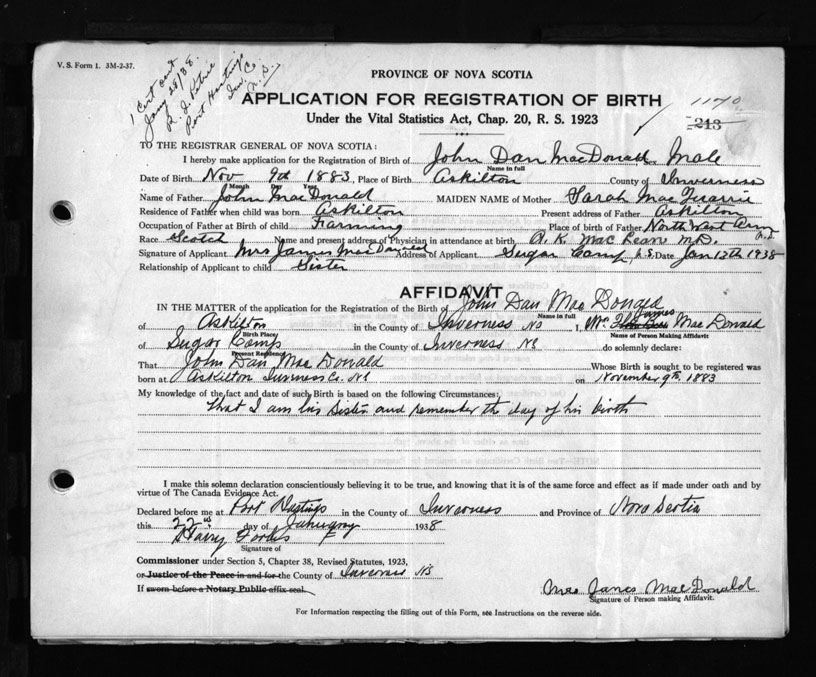 V. S. Form 1. 3M-2-37.
1 Cert sent
Jany 28/38.
Port Hastings
Inv. Co.
N. S.
PROVINCE OF NOVA SCOTIA
APPLICATION FOR REGISTRATION OF BIRTH
1170
Under the Vital Statistics Act, Chap. 20, R. S. 1923
213
TO THE REGISTRAR GENERAL OF NOVA SCOTIA:
I hereby make application for the Registration of Birth of John Dan MacDonald, Male
Name in full
Date of Birth Nov 9th 1883, Place of Birth Askilton County of Inverness
Month Day Year
Name of Father John MacDonald MAIDEN NAME of Mother Sarah Mac
Residence of Father when child was born Askilton Present address of Father Askilton
Occupation of Father at Birth of child Farming Place of birth of Father North West Arm
Race Scotch Name and present address of Physician in attendance at birth A. K. MacLean M.D.
Signature of Applicant Mrs James MacDonald Address of Applicant Sugar Camp, N.S. Date Jan 12th 1938
Relationship of Applicant to child Sister
AFFIDAVIT
IN THE MATTER of the application for the Registration of the Birth of John Dan Mac Donald
Name in full
of Askilton in the County of Inverness NS I, Mrs James Mac Donald
Birth Place Name of Person Making Affidavit
of Sugar Camp in the County of Inverness NS do solemnly declare:
Present Residence
That John Dan Mac Donald Whose Birth is sought to be registered was
born at Askilton Inverness Co. NS on November 9th, 1883
My knowledge of the fact and date of such Birth is based on the following Circumstances:
that I am his sister and remember the day of his birth
I make this solemn declaration conscientiously believing it to be true, and knowing that it is of the same force and effect as if made under oath and by
virtue of The Canada Evidence Act.
Declared before me at Port Hastings in the County of Inverness and Province of Nova Scotia
this 22nd day of January 1938
Harry Forbes
Signature of
Commissioner under Section 5, Chapter 38, Revised Statutes, 1923,
or Justice of the Peace in and for the County of Inverness NS
If sworn before a Notary Public affix seal.
Mrs James MacDonald
Signature of Person making Affidavit.
For Information respecting the filling out of this Form, see Instructions on the reverse side.